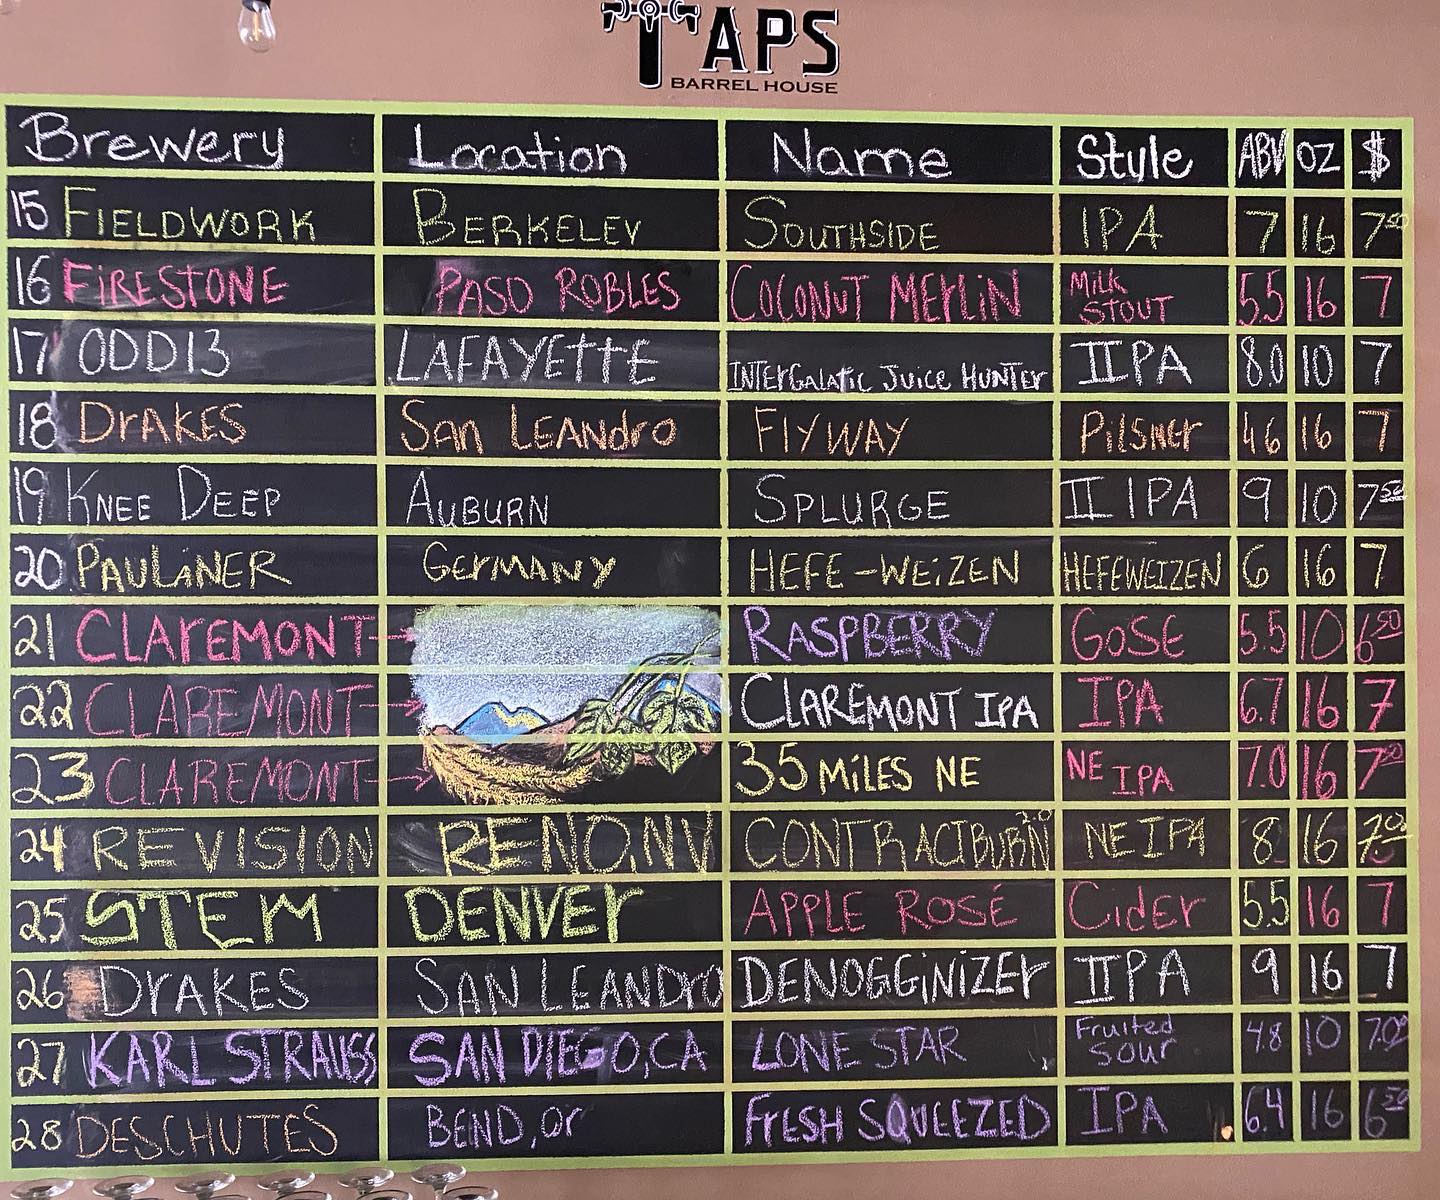 TAPS
BARREL HOUSE
Brewery Location Name Style ABV OZ $
15 FIELDWORK BERKELEY SOUTHSIDE IPA 7 16 7.50
16 FIRESTONE PASO ROBLES COCONUT MERLIN MILK STOUT 5.5 16 7
17 ODD13 LAFAYETTE INTERGALATIC JUICE HUNTER IIPA 8.0 10 7
18 DRAKES San LEANDRO FLYWAY PilSNER 4.6 16 7
19 KNEE DEEP AUBURN SPLURGE II IPA 9 10 7.50
20 PAULiNER GERMANY HEFE-WEiZEN HEFEWEIZEN 6 16 7
21 CLAREMONT RASPBERRY GOSE 5.5 10 6.50
22 CLAREMONT CLAREMONT IPA IPA 6.7 16 7
23 CLAREMONT 35 MiLES NE NE IPA 7.0 16 7.50
24 REVISION RENO,NV CONTRACTBURN 2.0 NE IPA 8 16 7.00
25 STEM DENVER APPLE ROSÉ CidER 5.5 16 7
26 DRAKES SAN LEANDRO DENOGGiNIZER IIPA 9 16 7
27 KARL STRAUSS SAN DIEGO,CA LONE STAR Fruited SOUR 4.8 10 7.00
28 DESCHUTES BEND,Or FRESH SQUEEZED IPA 6.4 16 6.50